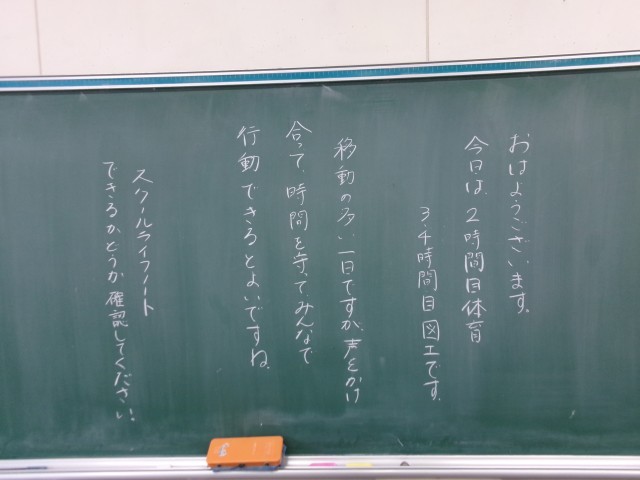 おはようございます。
今日は、2時間目体育
3.4時間目図工です。
移動の多い一日ですが、声をかけ
合って、時間を守ってみんなで
行動できるとよいですね。
スクールライフノート
できるかどうか確認してください。